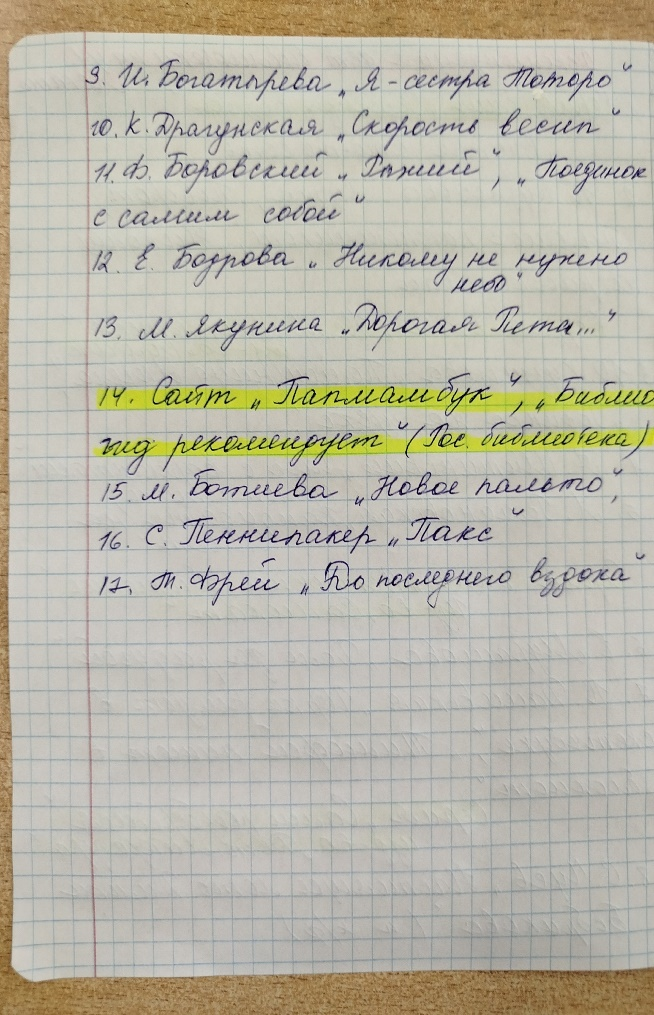 9. И. Богатырева „Я - сестра Тоторо"
10. К. Драгунская „Скорость весны"
11. Ф. Боровский „Рыжий", „Поединок
с самим собой"
12. Е. Бодрова „Никому не нужено
небо"
13. М. Якунина „Дорогая Пета..."
14. Сайт „Папмамбук", „Библио
гид рекомендует" (Гос. библиотека)
15. М. Ботиева „Новое пальто",
16. С. Пеннипакер „Пакс"
17. Т. Фрей „До последнего вздоха"